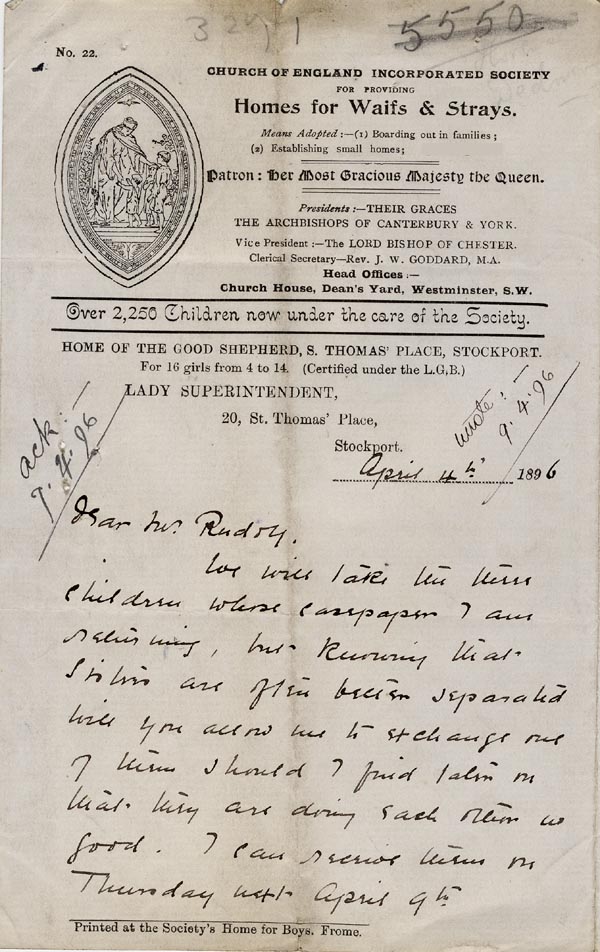 3291
5550
No. 22.
CHURCH OF ENGLAND INCORPORATED SOCIETY
FOR PROVIDING
Homes for Waifs & Strays.
Means Adopted :—(1) Boarding out in families ;
(2) Establishing small homes;
Patron : Her Most Gracious Majesty the Queen.
Presidents :—THEIR GRACES
THE ARCHBISHOPS OF CANTERBURY & YORK.
Vice President :—The LORD BISHOP OF CHESTER.
Clerical Secretary—Rev. J. W. GODDARD, M.A.
Head Offices :—
Church House, Dean's Yard, Westminster, S.W.
Over 2,250 Children now under the care of the Society.
HOME OF THE GOOD SHEPHERD, S. THOMAS' PLACE, STOCKPORT.
For 16 girls from 4 to 14. (Certified under the L.G.B.)
LADY SUPERINTENDENT,
20, St. Thomas' Place,
Stockport.
ack :
9.4.96
wrote :
9.4.96
April 4th 1896
Dear Mr Rudolf,
We will take the three
children whose casepaper I am
returning, but knowing that
Sisters are often better separated
will you allow me to exchange one
of them should I find later on
that they are doing each other no
good. I can receive them on
Thursday next April 9th
Printed at the Society's Home for Boys. Frome.